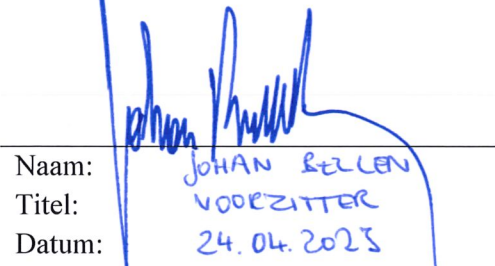 Naam: JOHAN BELLEN
Titel: VOORZITTER
Datum: 24.04.2023